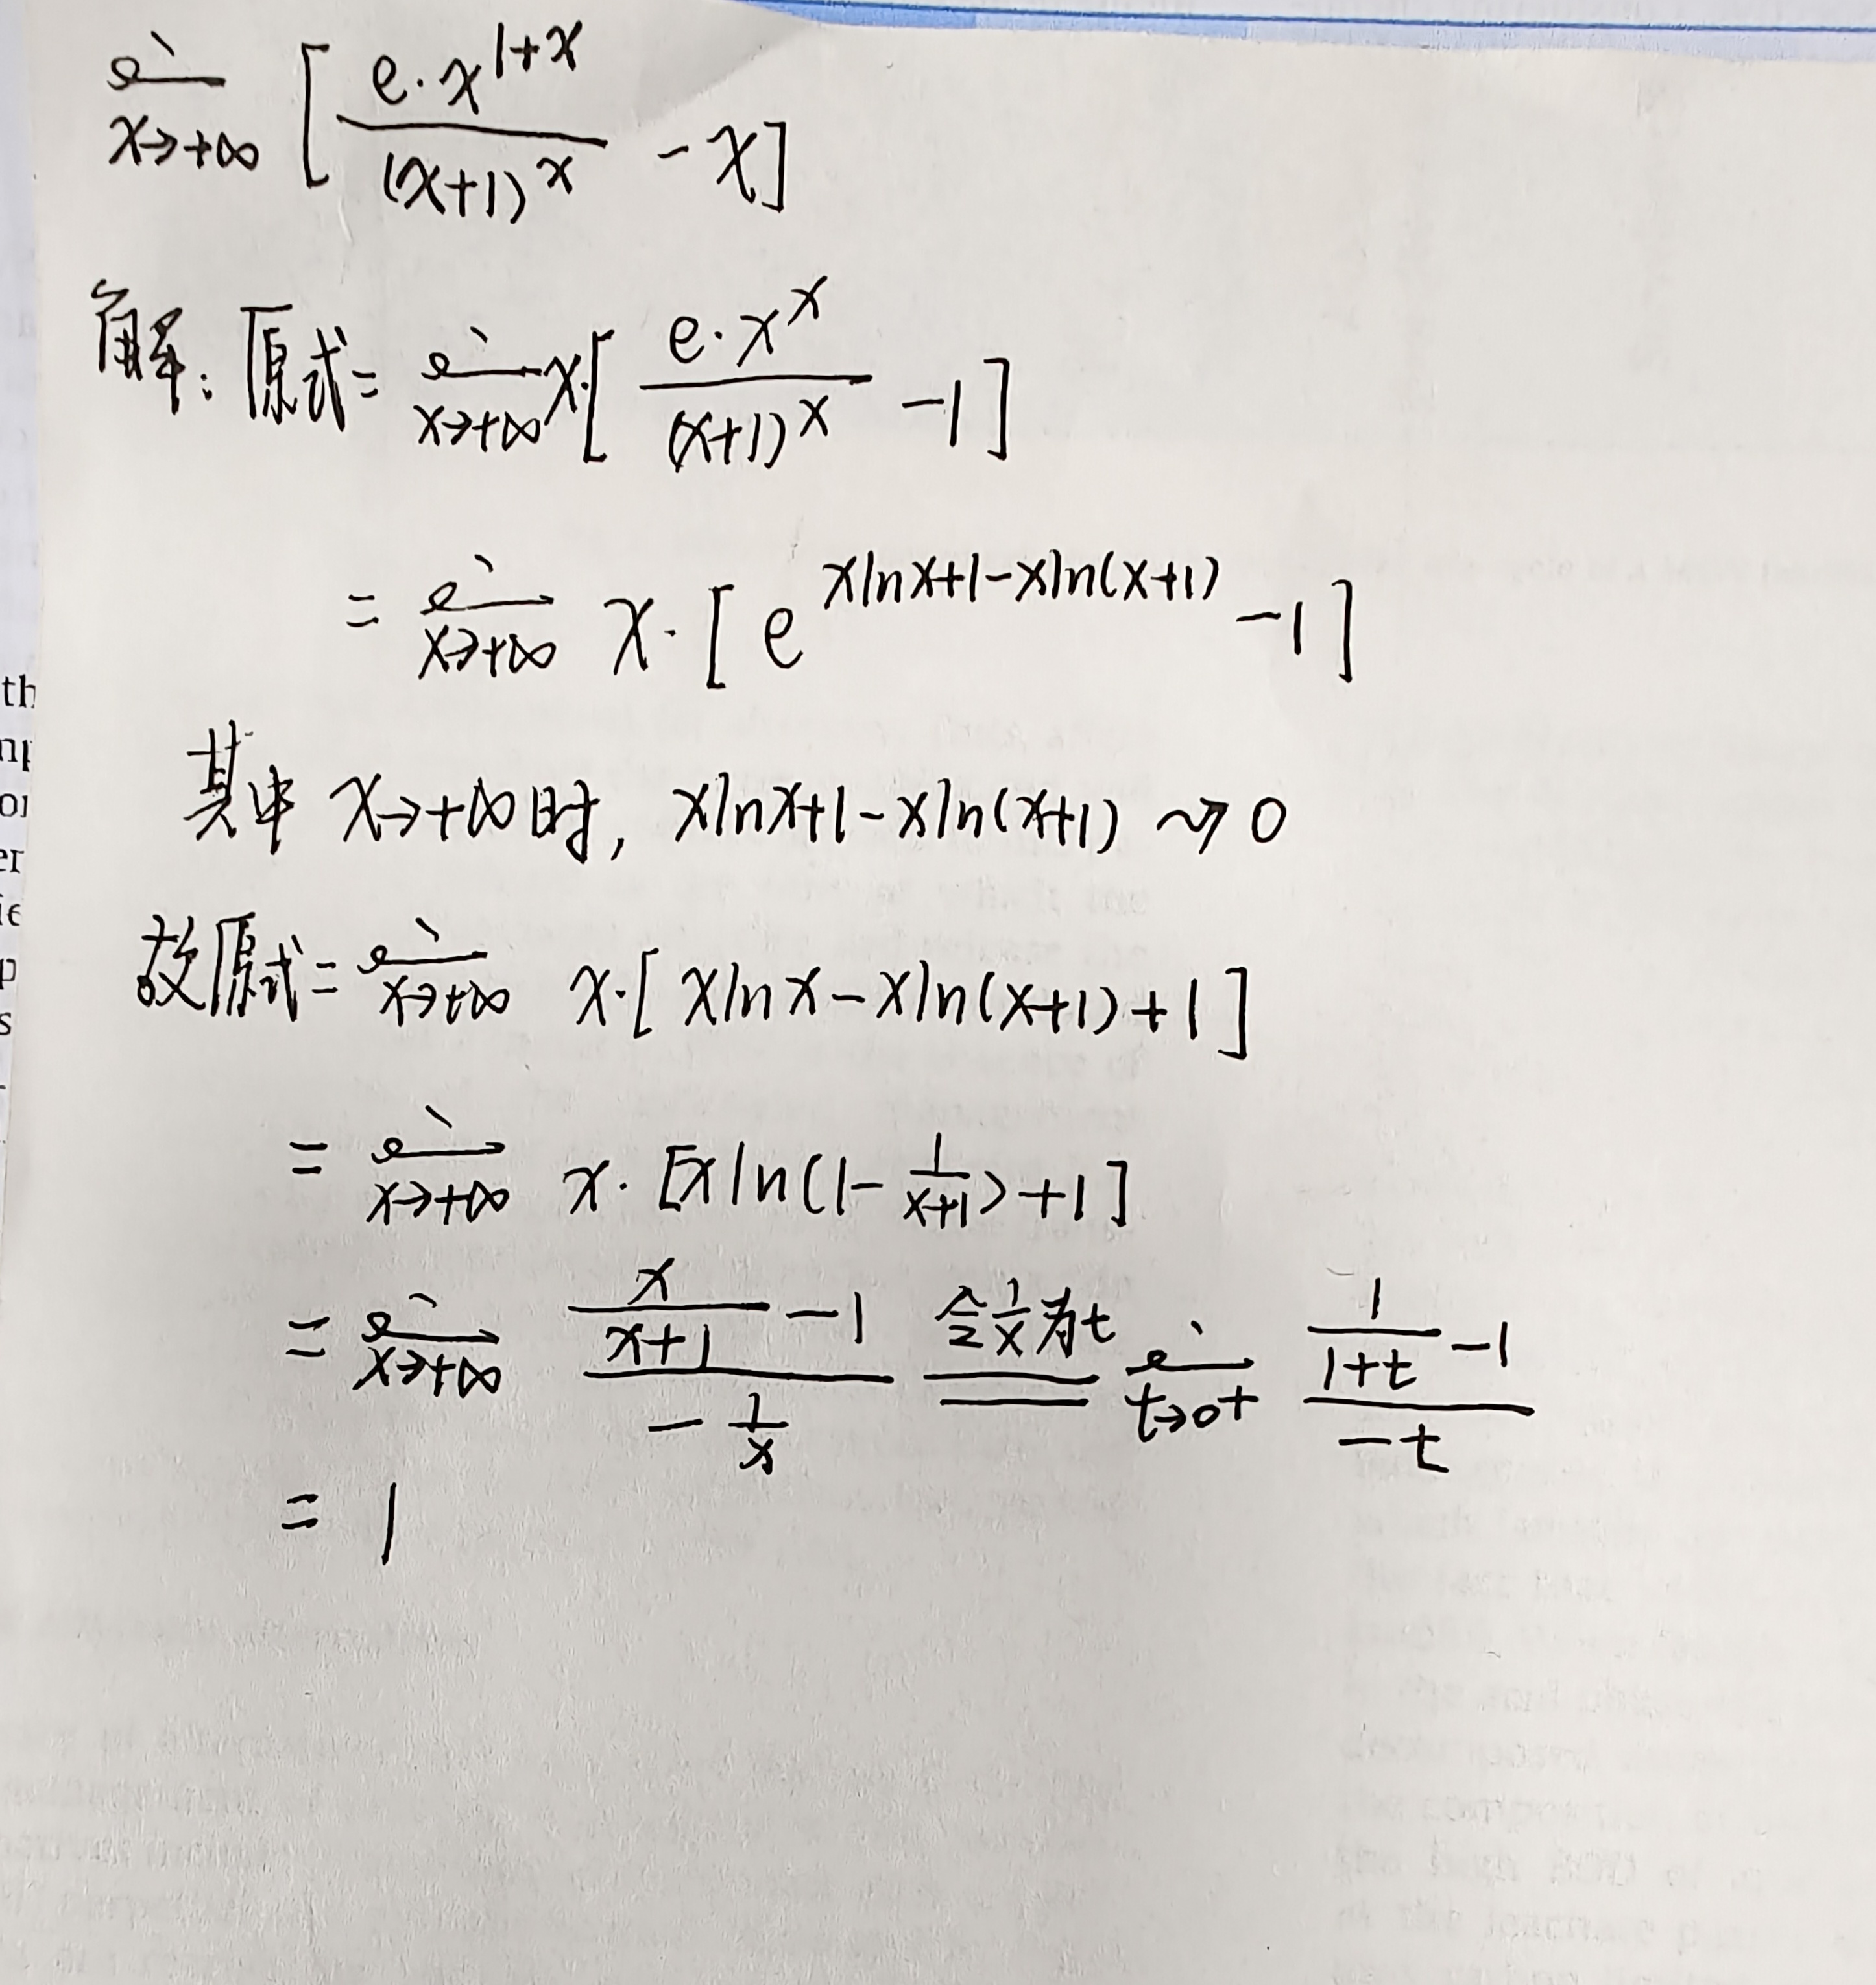 lim x→+∞ [ e·x^(1+x) / (x+1)^x - x ]
解：原式= lim x→+∞ x·[ e·x^x / (x+1)^x - 1 ]
= lim x→+∞ x·[ e^(xlnx+1-xln(x+1)) - 1 ]
其中 x→+∞时, xlnx+1-xln(x+1) ~→ 0
故原式= lim x→+∞ x·[ xlnx-xln(x+1)+1 ]
= lim x→+∞ x·[xln(1-1/(x+1))+1]
= lim x→+∞ (x/(x+1) - 1)/(-1/x) 令1/x为t == lim t→0+ (1/(1+t) - 1)/(-t)
= 1
th
er
p
s